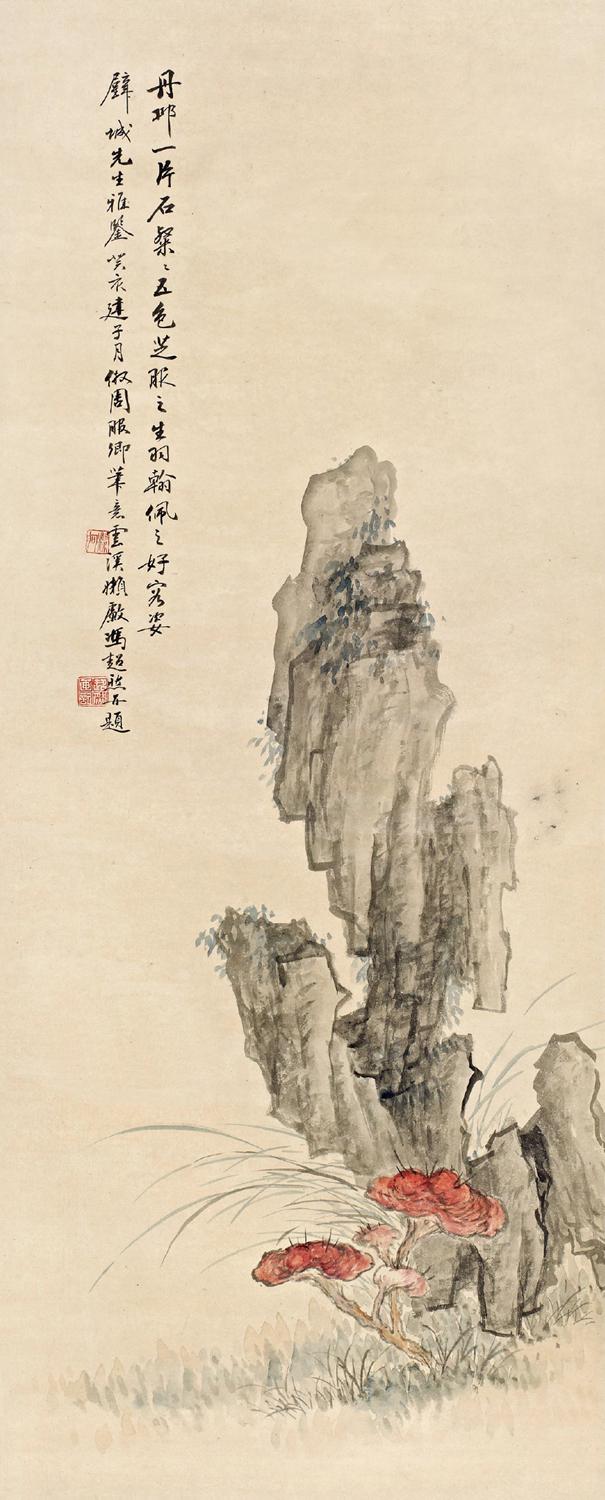 丹邱一片石粲〻五色芝服之生羽翰佩之好容姿
辟城先生雅鑒癸亥建子月倣周服卿筆意雲溪嬾廠馮超然并題